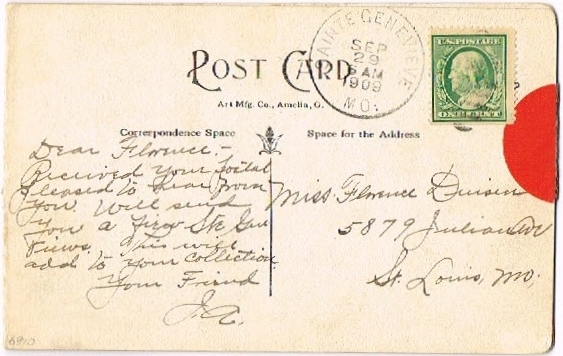 SAINTE GENEVIEVE
SEP
29
5 AM
1909
MO.
U.S. POSTAGE
ONE CENT
POST CARD
Art Mfg. Co., Amelia, O.
Correspondence Space
Space for the Address
Dear Florence:-
Received your postal
pleased to hear from
you. Will send
you a few Ste Gen
views. This will
add to your collection
Your Friend
J.A.
Miss Florence
5879 Julian Av
St. Louis, Mo.